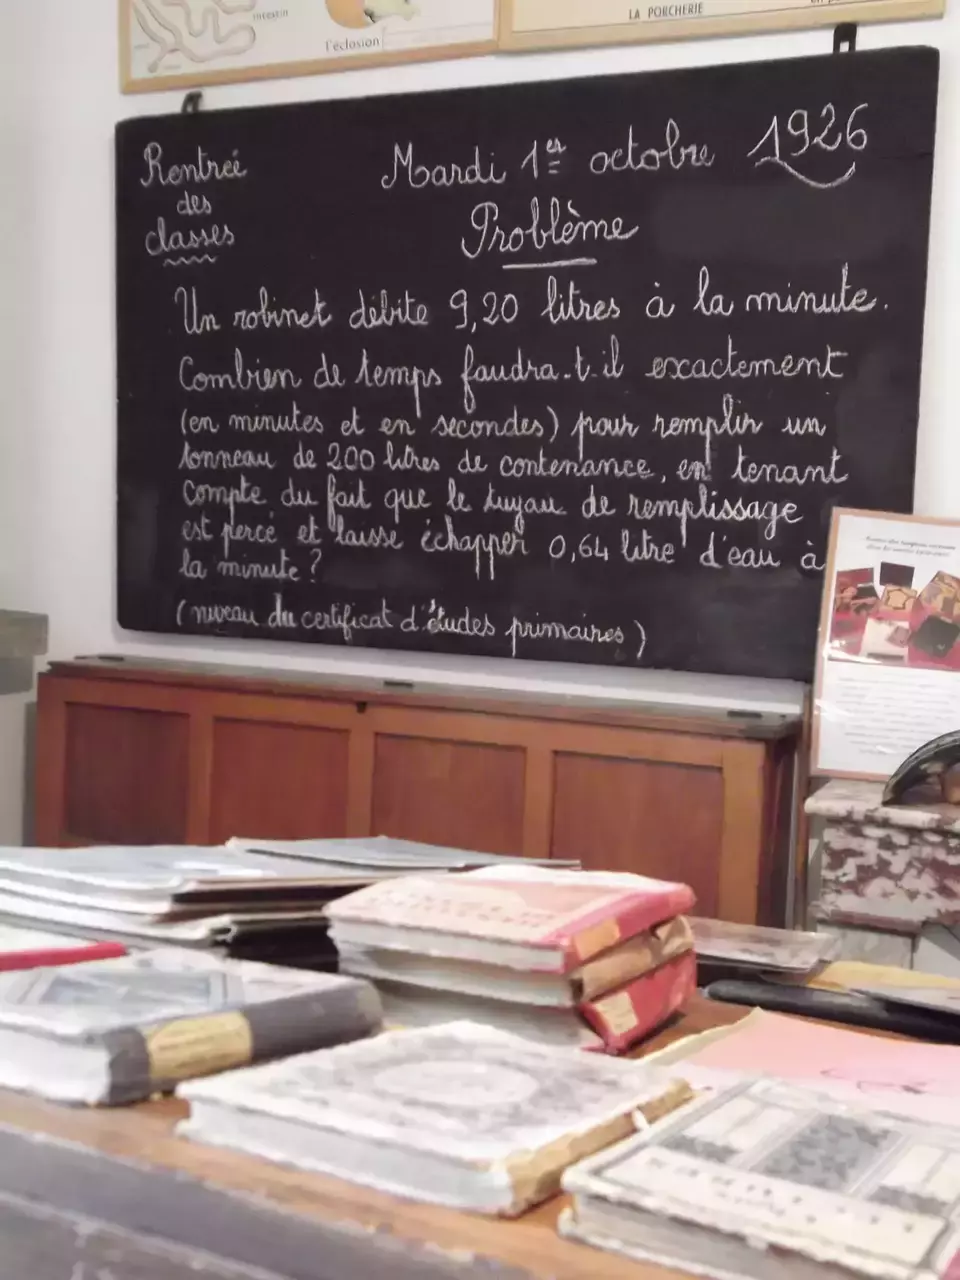 intestin
l'éclosion
LA PORCHERIE
Rentrée
des
classes
Mardi 1er octobre 1926
Problème
Un robinet débite 9,20 litres à la minute.
Combien de temps faudra-t-il exactement
(en minutes et en secondes) pour remplir un
tonneau de 200 litres de contenance, en tenant
compte du fait que le tuyau de remplissage
est percé et laisse échapper 0,64 litre d'eau à
la minute ?
(niveau du certificat d'études primaires)